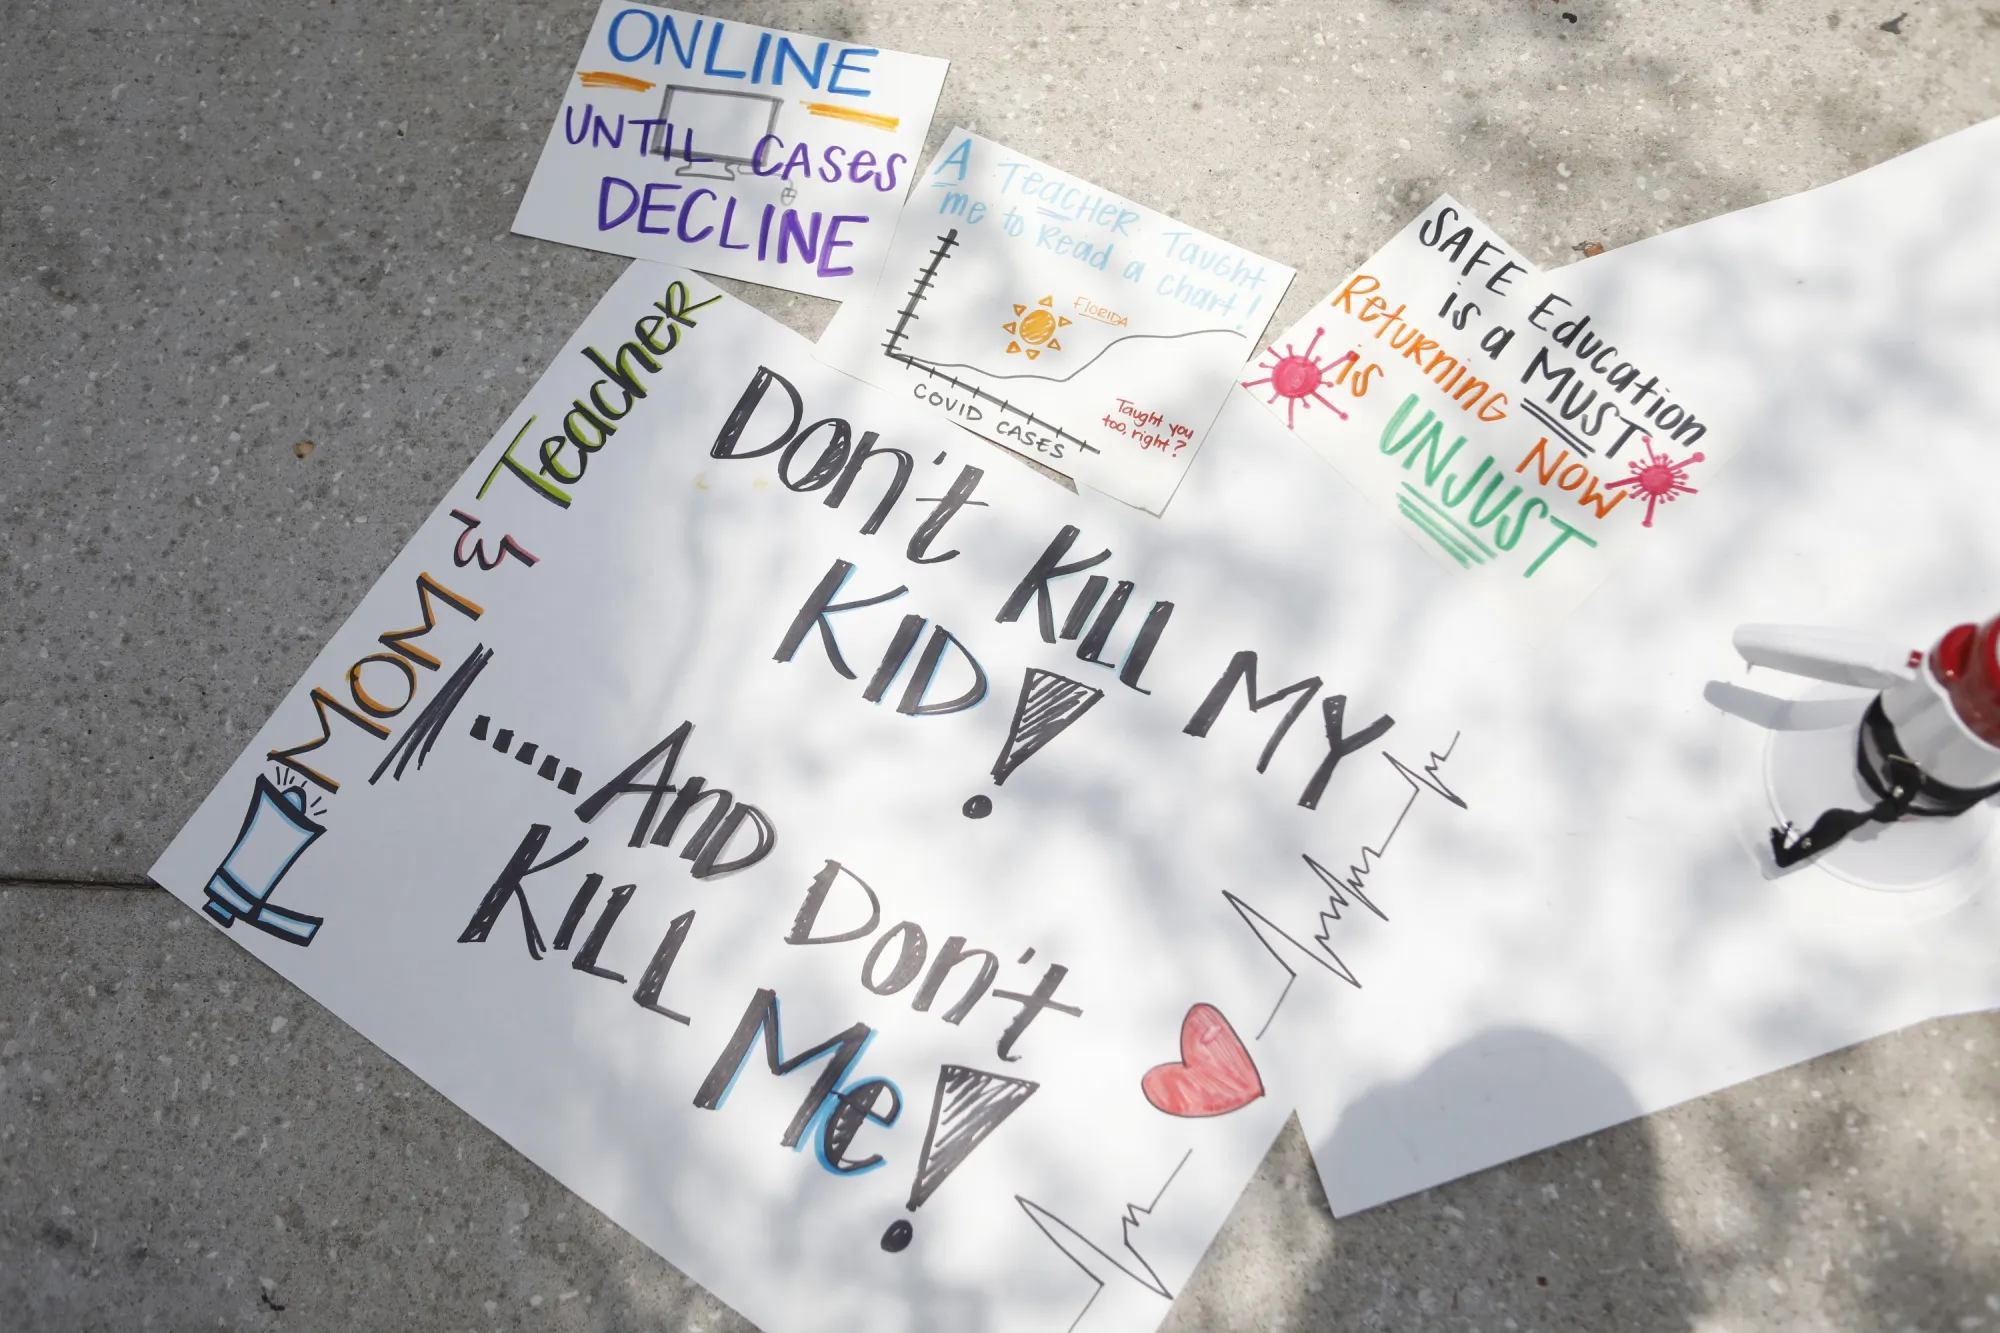 ONLINE
UNTIL CASES
DECLINE
A TEACHER Taught
me to Read a chart!
FLORIDA
COVID CASES
Taught you
too, right?
SAFE Education
is a MUST
Returning NOW
is UNJUST
MOM & Teacher
Don't KILL MY
KID!
.....And Don't
KILL Me!